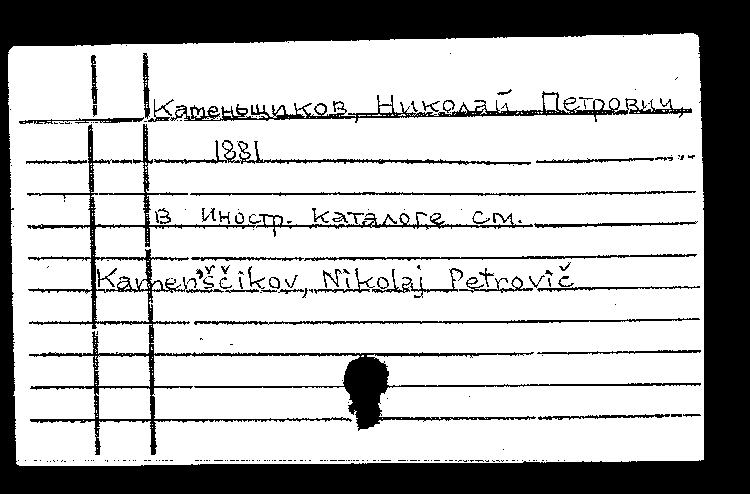 Каменьщиков, Николай Петрович,
1881
В иностр. каталоге см.
Kamen'ščikov, Nikolaj Petrovič